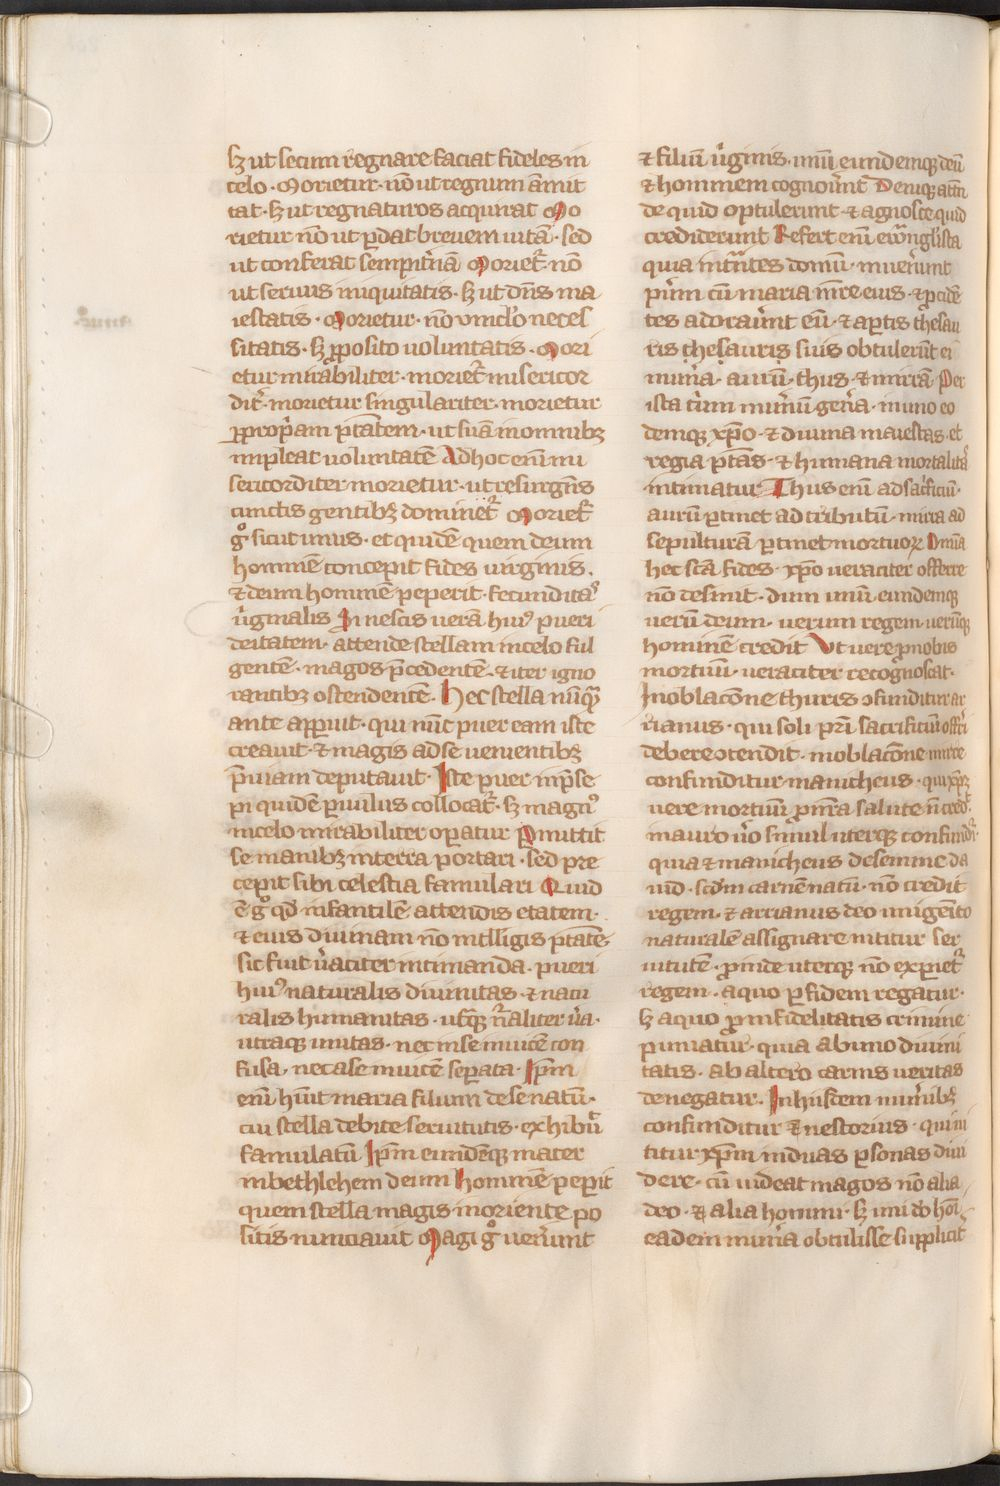 sꝫ ut secum regnare faciat fideles in
celo · Morietur · nō ut regnum āmit
tat · sꝫ ut regnaturos acquirat Mo
rietur nō ut ꝑdat brevem uitā · sed
ut conferat sempit̾nā Moriet᷑ · nō
ut seruus iniquitatis · sꝫ ut dn̄s ma
iestatis · Morietur · nō vinclo neces
sitatis · sꝫ ꝓposito uoluntatis · Mori
etur mirabiliter · moriet᷑ misericor
dit̾ · morietur singulariter · morietur
ꝓpropͥam ptātem · ut suā in omnibꝫ
impleat uoluntatē Ad hoc enī mi
sericorditer morietur · ut resurgēs
cunctis gentibꝫ dominet᷑ Moriet᷑
gͦ sicut unus · et quidē quem deum
hominē concepit fides uirginis ·
⁊ deum hominē peperit · fecunditaꝰ
u̾ginalis Si nescis uerā huiꝰ pueri
deitatem · attende stellam in celo ful
gentē · magos p̄cedentē · ⁊ iter igno
rantibꝫ ostendentē · Hec stella nūqᷓ
ante apꝑuit · qui nūc puer eam iste
creauit · ⁊ magis ad se uenientibꝫ
p̄uiam deputauit · Iste puer in p̄se
pi quidē ꝑuulus collocat᷑ · sꝫ magnꝰ
in celo mirabiliter oꝑatur Pmittit
se manibꝫ in terra portari · sed pre
cepit sibi celestia famulari Quid
ē gͦ qd̄ infantilē attendis etatem ·
⁊ eius diuinam nō intlligis ptātē ·
sic fuit u̾aciter intimanda · pueri
huiꝰ naturalis diuinitas · ⁊ natu
ralis humanitas · usqꝫ n̄aliter u̾a ·
utraqꝫ unitas · nec in se inuicē con
fusa · nec a se inuicē seꝑata · Ip̄m
enī hūit maria filium de se natū ·
cui stella debite seruitutis · exhibuͥt
famulatū Ip̄m eundēqꝫ mater
in bethlehem deum hominē peperit
quem stella magis in oriente po
sitis nunciauit Magi gͦ uen̾unt
⁊ filiū u̾ginis · unū eundemqꝫ deū
⁊ hominem cognou̾unt Deniqꝫ attn̄
de quid optulerunt · ⁊ agnosce quid
crediderunt Refert enī euāngl̾ista
quia intᷓntes domū · inuen̾unt
pu̾m cū maria mr̄e eius · ⁊ ꝓcidē
tes adorau̾unt eū · ⁊ aꝑtis thesau
ris thesauris suis obtulerūt ei
mun̾a · aurū · thus · ⁊ mirrā · Per
ista t̾um mun̾ū gen̾a · in uno eo
demqꝫ xp̄o · ⁊ diuina maiestas · et
regia ptās · ⁊ humana mortalitᷓ
intimatur Thus enī ad sac̾ficiū ·
aurū ꝑtinet ad tributū · mirra ad
sepulturā ꝑtinet mortuoꝝ Om̄ia
hec sc̄a fides · xp̄o ueraciter offerre
nō desinit · dum unū eundemqꝫ
uerū deum · uerum regem · uerūqꝫ
hominē credit Vt uere ꝓ nobis
mortuū · ueraciter recognoscat ·
In oblacōne thuris ꝯfunditur ar
rianus · qui soli pr̄i sacrificiū offr̄i
debere ꝯtendit · in oblacōne mirre
confunditur manicheus · qui xp̄m
uere mortuū ꝓ nr̄a salute n̄ cred᷑ ·
in auro u̾o simul uterqꝫ confundit᷑
quia ⁊ manicheus de semine da
uid · scdm̄ carnē natū · nō credit
regem · ⁊ arrianus deo unigēito
naturalē assignare nititur ser
uitutē · ꝓinde uterqꝫ nō exꝑiet᷑
regem · a quo ꝑ fidem regatur ·
sꝫ a quo ꝓ infidelitatis crimine
puniatur · quia ab uno diuini
tatis · ab altero carnis ueritas
denegatur · In hiisdem mun̾ibꝫ
confunditur ⁊ nestorius · qui ni
titur xp̄m in duas ꝑsonas diui
dere · cū uideat magos nō alia
deo · ⁊ alia homini · sꝫ uni dō hōi
eadem mun̾a obtulisse supplicit᷑